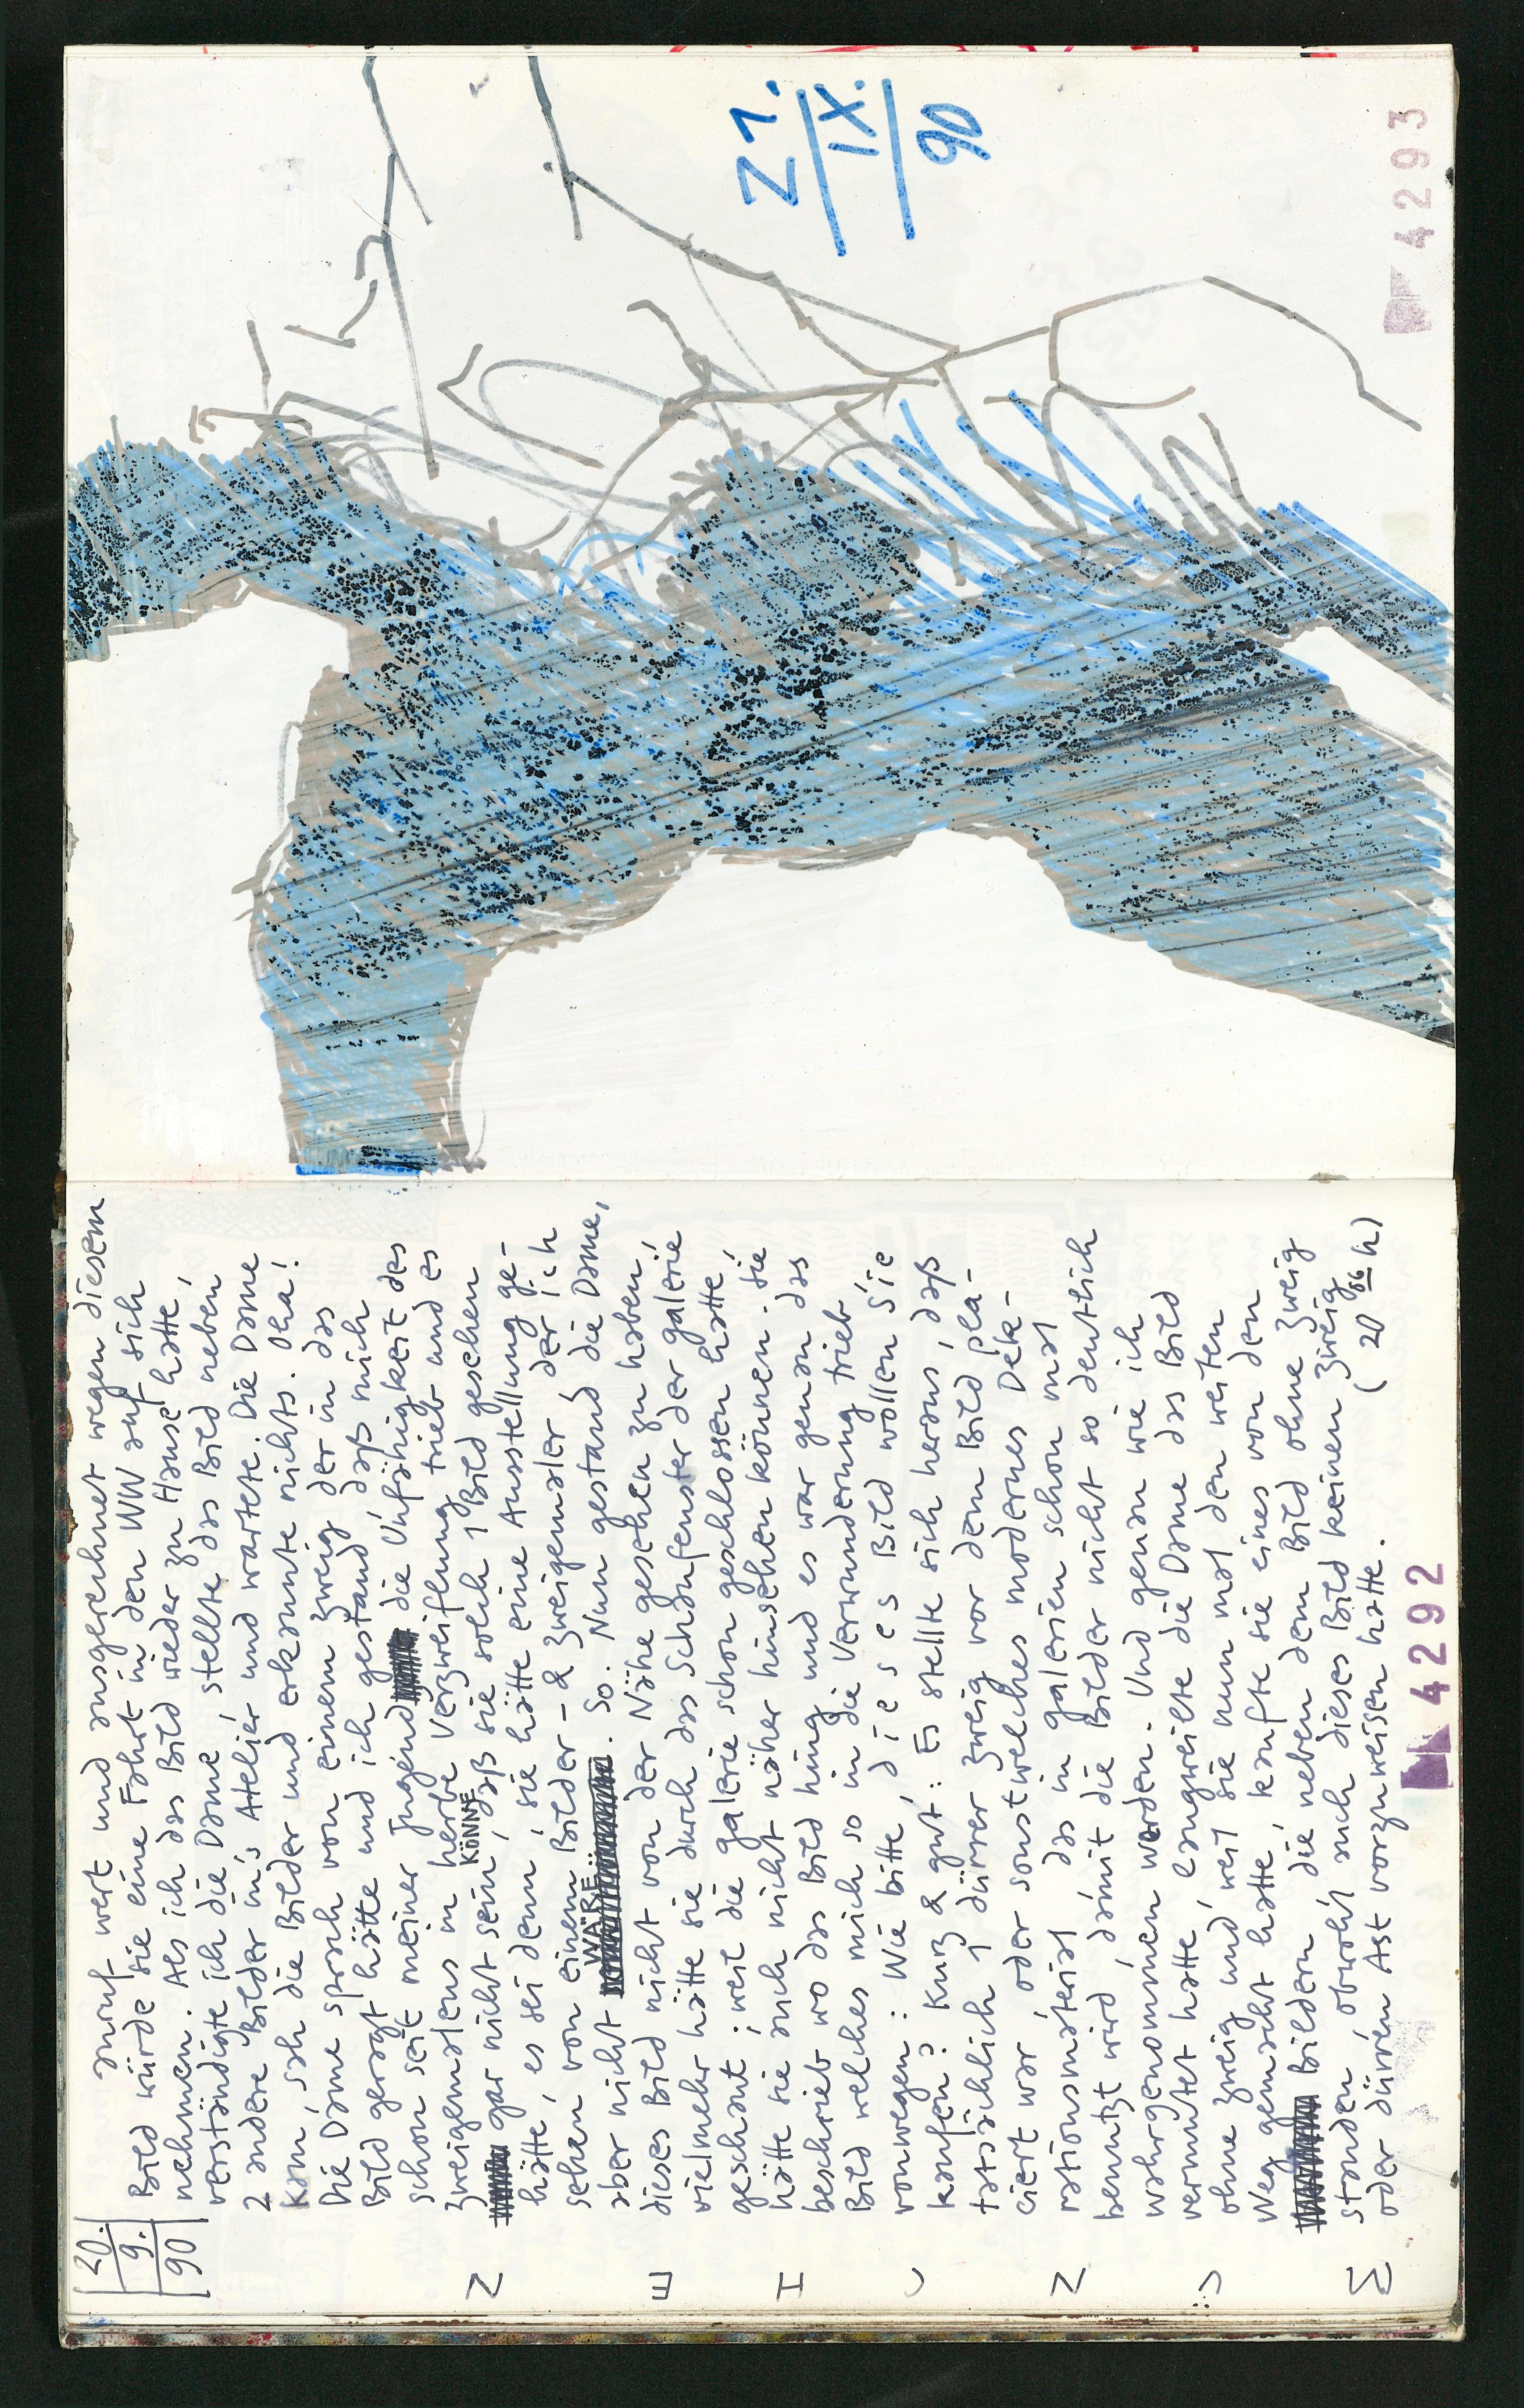 20.
9.
90
anruf wert und ausgerechnet wegen diesem
Bild würde sie eine Fahrt in den WW auf sich
nehmen. Als ich das Bild wieder zu Hause hatte,
verständigte ich die Dame, stellte das Bild neben
2 andere Bilder in's Atelier und wartete. Die Dame
kam, sah die Bilder und erkannte nichts. Oha!
Die Dame sprach von einem Zweig der in das
Bild geragt hätte und ich gestand, daß mich
schon seit meiner Jugend die Unfähigkeit des
Zweigemalens in herbe Verzweiflung trieb und es
gar nicht sein KÖNNE, daß sie solch 1 Bild gesehen
hätte, es sei denn, sie hätte eine Ausstellung ge-
sehen von einem Bilder- & Zweigemaler der ich
aber nicht WÄRE.. So. Nun gestand die Dame,
dieses Bild nicht von der Nähe gesehen zu haben,
vielmehr hätte sie durch das Schaufenster der galerie
geschaut; weil die galerie schon geschlossen hatte,
hätte sie auch nicht näher hinsehen können. Sie
beschrieb wo das Bild hing und es war genau das
Bild welches mich so in die Verwunderung trieb
vonwegen: Wie bitte, dieses Bild wollen Sie
kaufen? Kurz & gut: Es stellte sich heraus, daß
tatsächlich 1 dürrer Zweig vor dem Bild pla-
ciert war, oder sonstwelches modernes Deko-
rationsmaterial das in galerien schon mal
benutzt wird, damit die Bilder nicht so deutlich
wahrgenommen werden. Und genau wie ich
vermutet hatte, langweilte die Dame das Bild
ohne Zweig und, weil sie nun mal den weiten
Weg gemacht hatte, kaufte sie eines von den
Bildern die neben dem Bild ohne Zweig
standen, obwohl auch dieses Bild keinen Zweig
oder dürren Ast vorzuweisen hatte. (20 56 h)
MÜNCHEN
4292
21.
IX.
90
4293